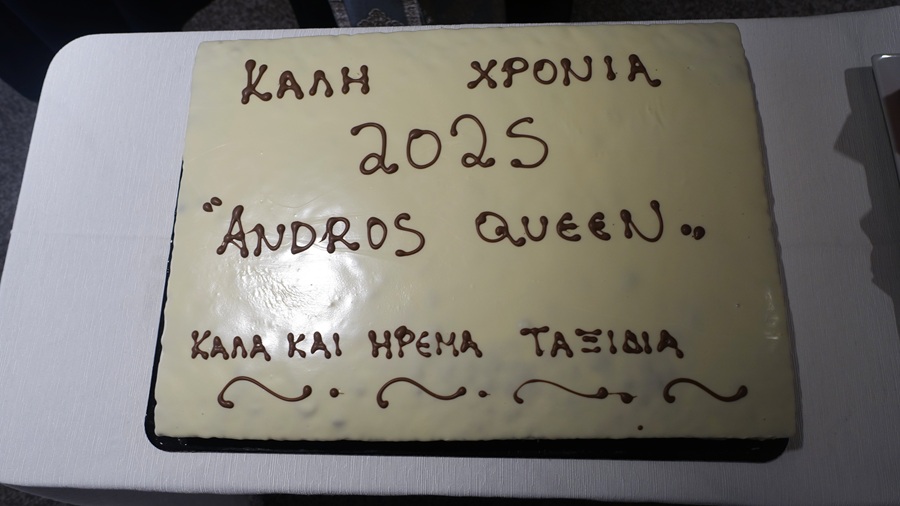 ΚΑΛΗ ΧΡΟΝΙΑ
2025
"ANDROS QUEEN"
ΚΑΛΑ ΚΑΙ ΗΡΕΜΑ ΤΑΞΙΔΙΑ